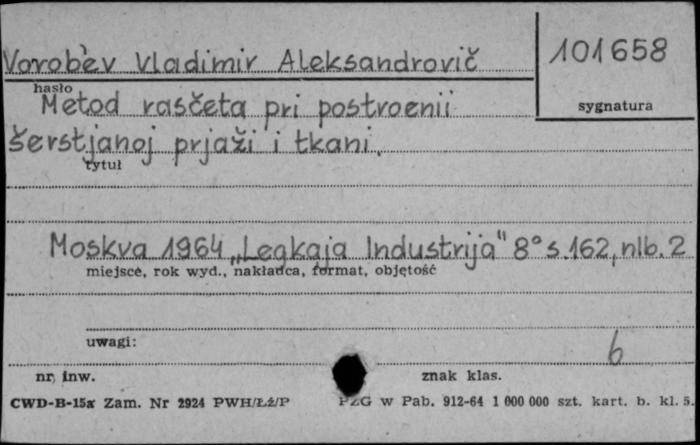 Vorob'ev Vladimir Aleksandrovič
101658
hasło
sygnatura
Metod rasčeta pri postroenii
šerstjanoj prjaži i tkani.
tytuł
Moskva 1964 „Legkaja Industrija" 8° s. 162, nlb. 2
miejsce, rok wyd., nakładca, format, objętość
uwagi:
6
nr. inw.
znak klas.
CWD-B-15x Zam. Nr 2924 PWH/Łż/P
PZG w Pab. 912-64 1 000 000 szt. kart. b. kl. 5.